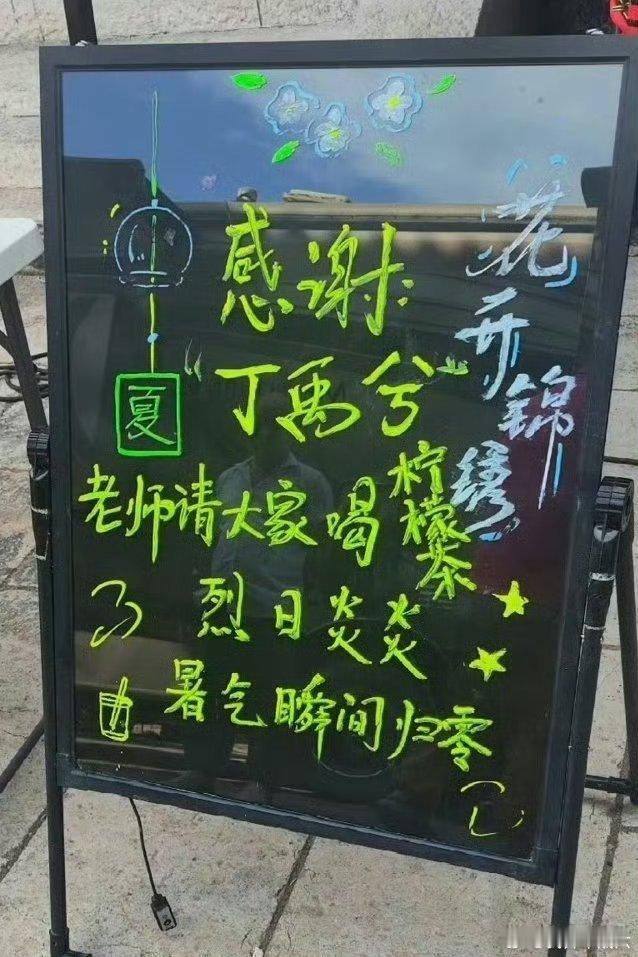 花开锦绣
感谢:
夏
“丁禹兮”
老师请大家喝柠檬茶
烈日炎炎
暑气瞬间归零